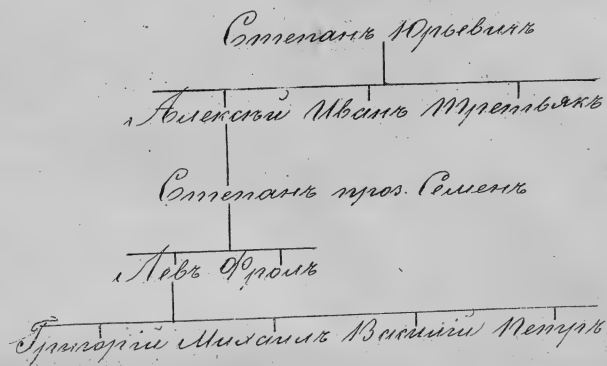 Степанъ Юрьевичъ
Алексѣй Иванъ Третьякъ
Степанъ проз. Семенъ
Левъ Фролъ
Григорій Михаилъ Василій Петръ